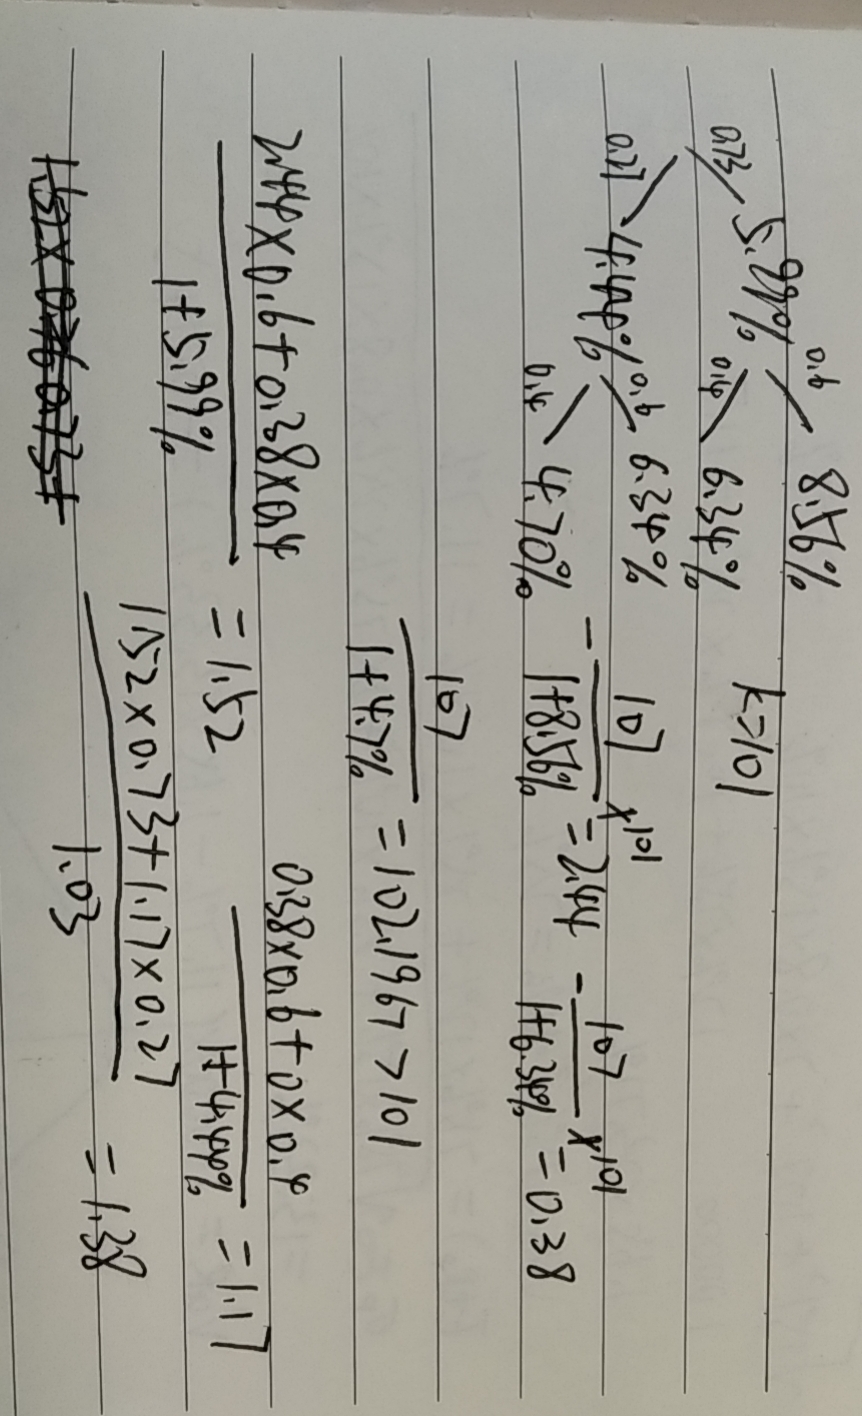 0.6 8.56%
5.99%
0.73 0.4 6.34% k=101
0.27 4.44% 0.6 6.34%
0.4 4.70%
- 107 / 1+8.56% ∨ 101 = 2.44 - 107 / 1+6.34% ∨ 101 = 0.38
107 / 1+4.7% = 102.1967 > 101
2.44×0.6+0.38×0.4 / 1+5.99% = 1.52 0.38×0.6+0×0.4 / 1+4.44% = 1.17
1.52×0.73+1.17×0.27 / 1.03 = 1.38